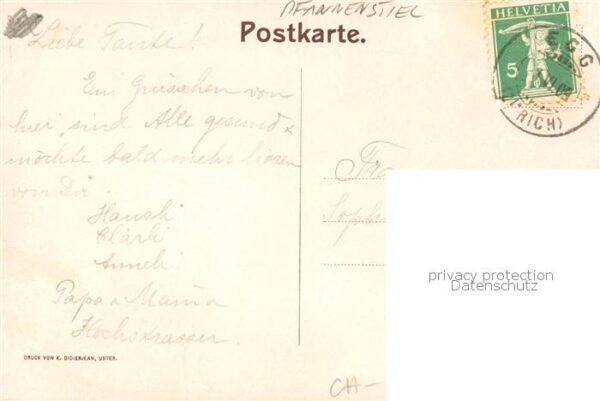 PFANNENSTIEL
Postkarte.
HELVETIA
5
EGG
(ZÜRICH)
Liebe Tante!
Ein Grüsschen von
hier, sind Alle gesund &
möchte bald mehr hören
von Dir.
Hansli
Clärli
Anneli
Papa & Mama
Hochstrasser.
Fra
Soph
DRUCK VON K. DIDIERJEAN, USTER.
CH-
privacy protection
Datenschutz